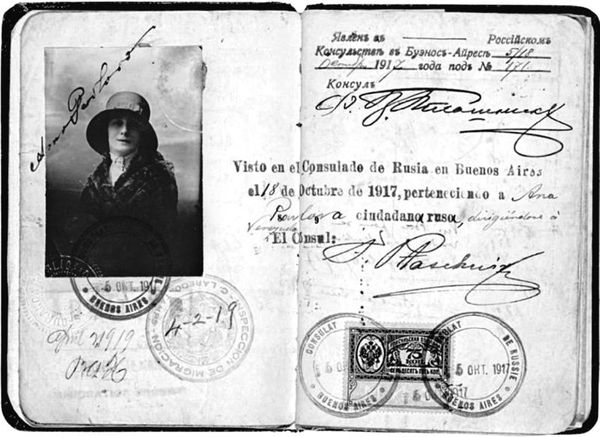 Anna Pavlova
5 ОКТ. 1917
BUENOS AIRES
INSPECCIÓN DE MIGRACION
4-2-19
Явленъ въ Россійскомъ
Консульствѣ въ Буэносъ-Айресѣ 5/18
Октября 1917 года подъ № 171.
Консулъ
Visto en el Consulado de Rusia en Buenos Aires
el 18 de Octubre de 1917, perteneciendo a Ana
Pavlova ciudadana rusa, dirigiéndose á
Venezuela
El Cónsul:
CONSULAT DE RUSSIE
5 ОКТ. 1917
BUENOS AIRES
75
CONSULAT DE RUSSIE
5 ОКТ. 1917
BUENOS AIRES